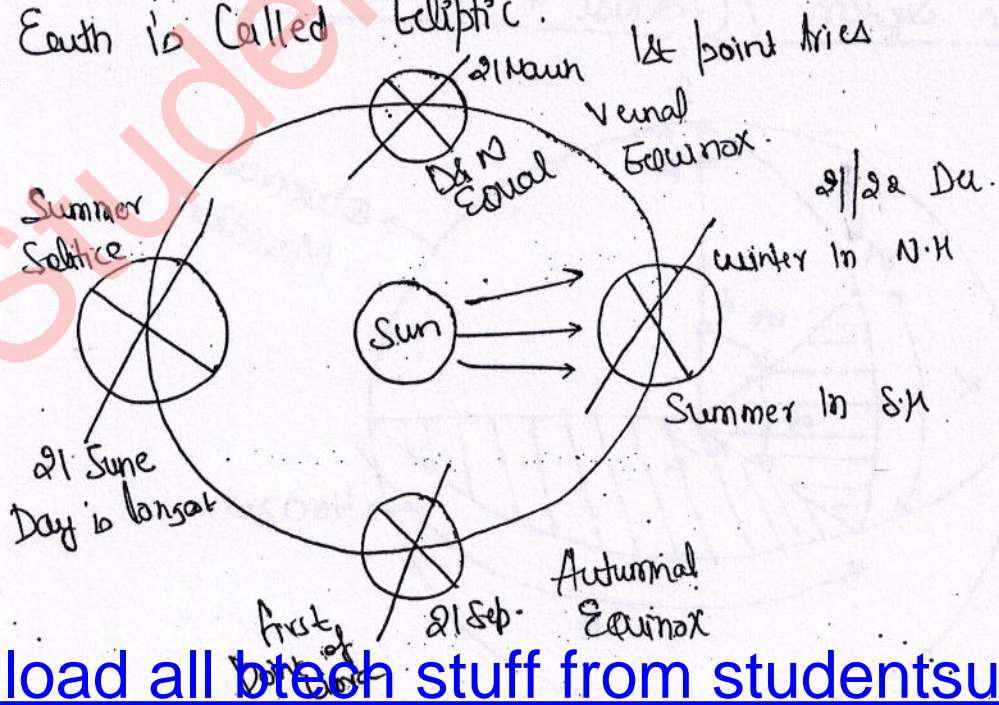 Earth is Called Ecliptic.
21 March
1st point Aries
Vernal
Equinox.
D & N
Equal
21/22 Dec.
Summer
Solstice
winter in N.H
Sun
Summer in S.H
21 June
Day is longest
Autumnal
Equinox
21 Sep.
first
Point of
load all btech stuff from studentsu
Stude